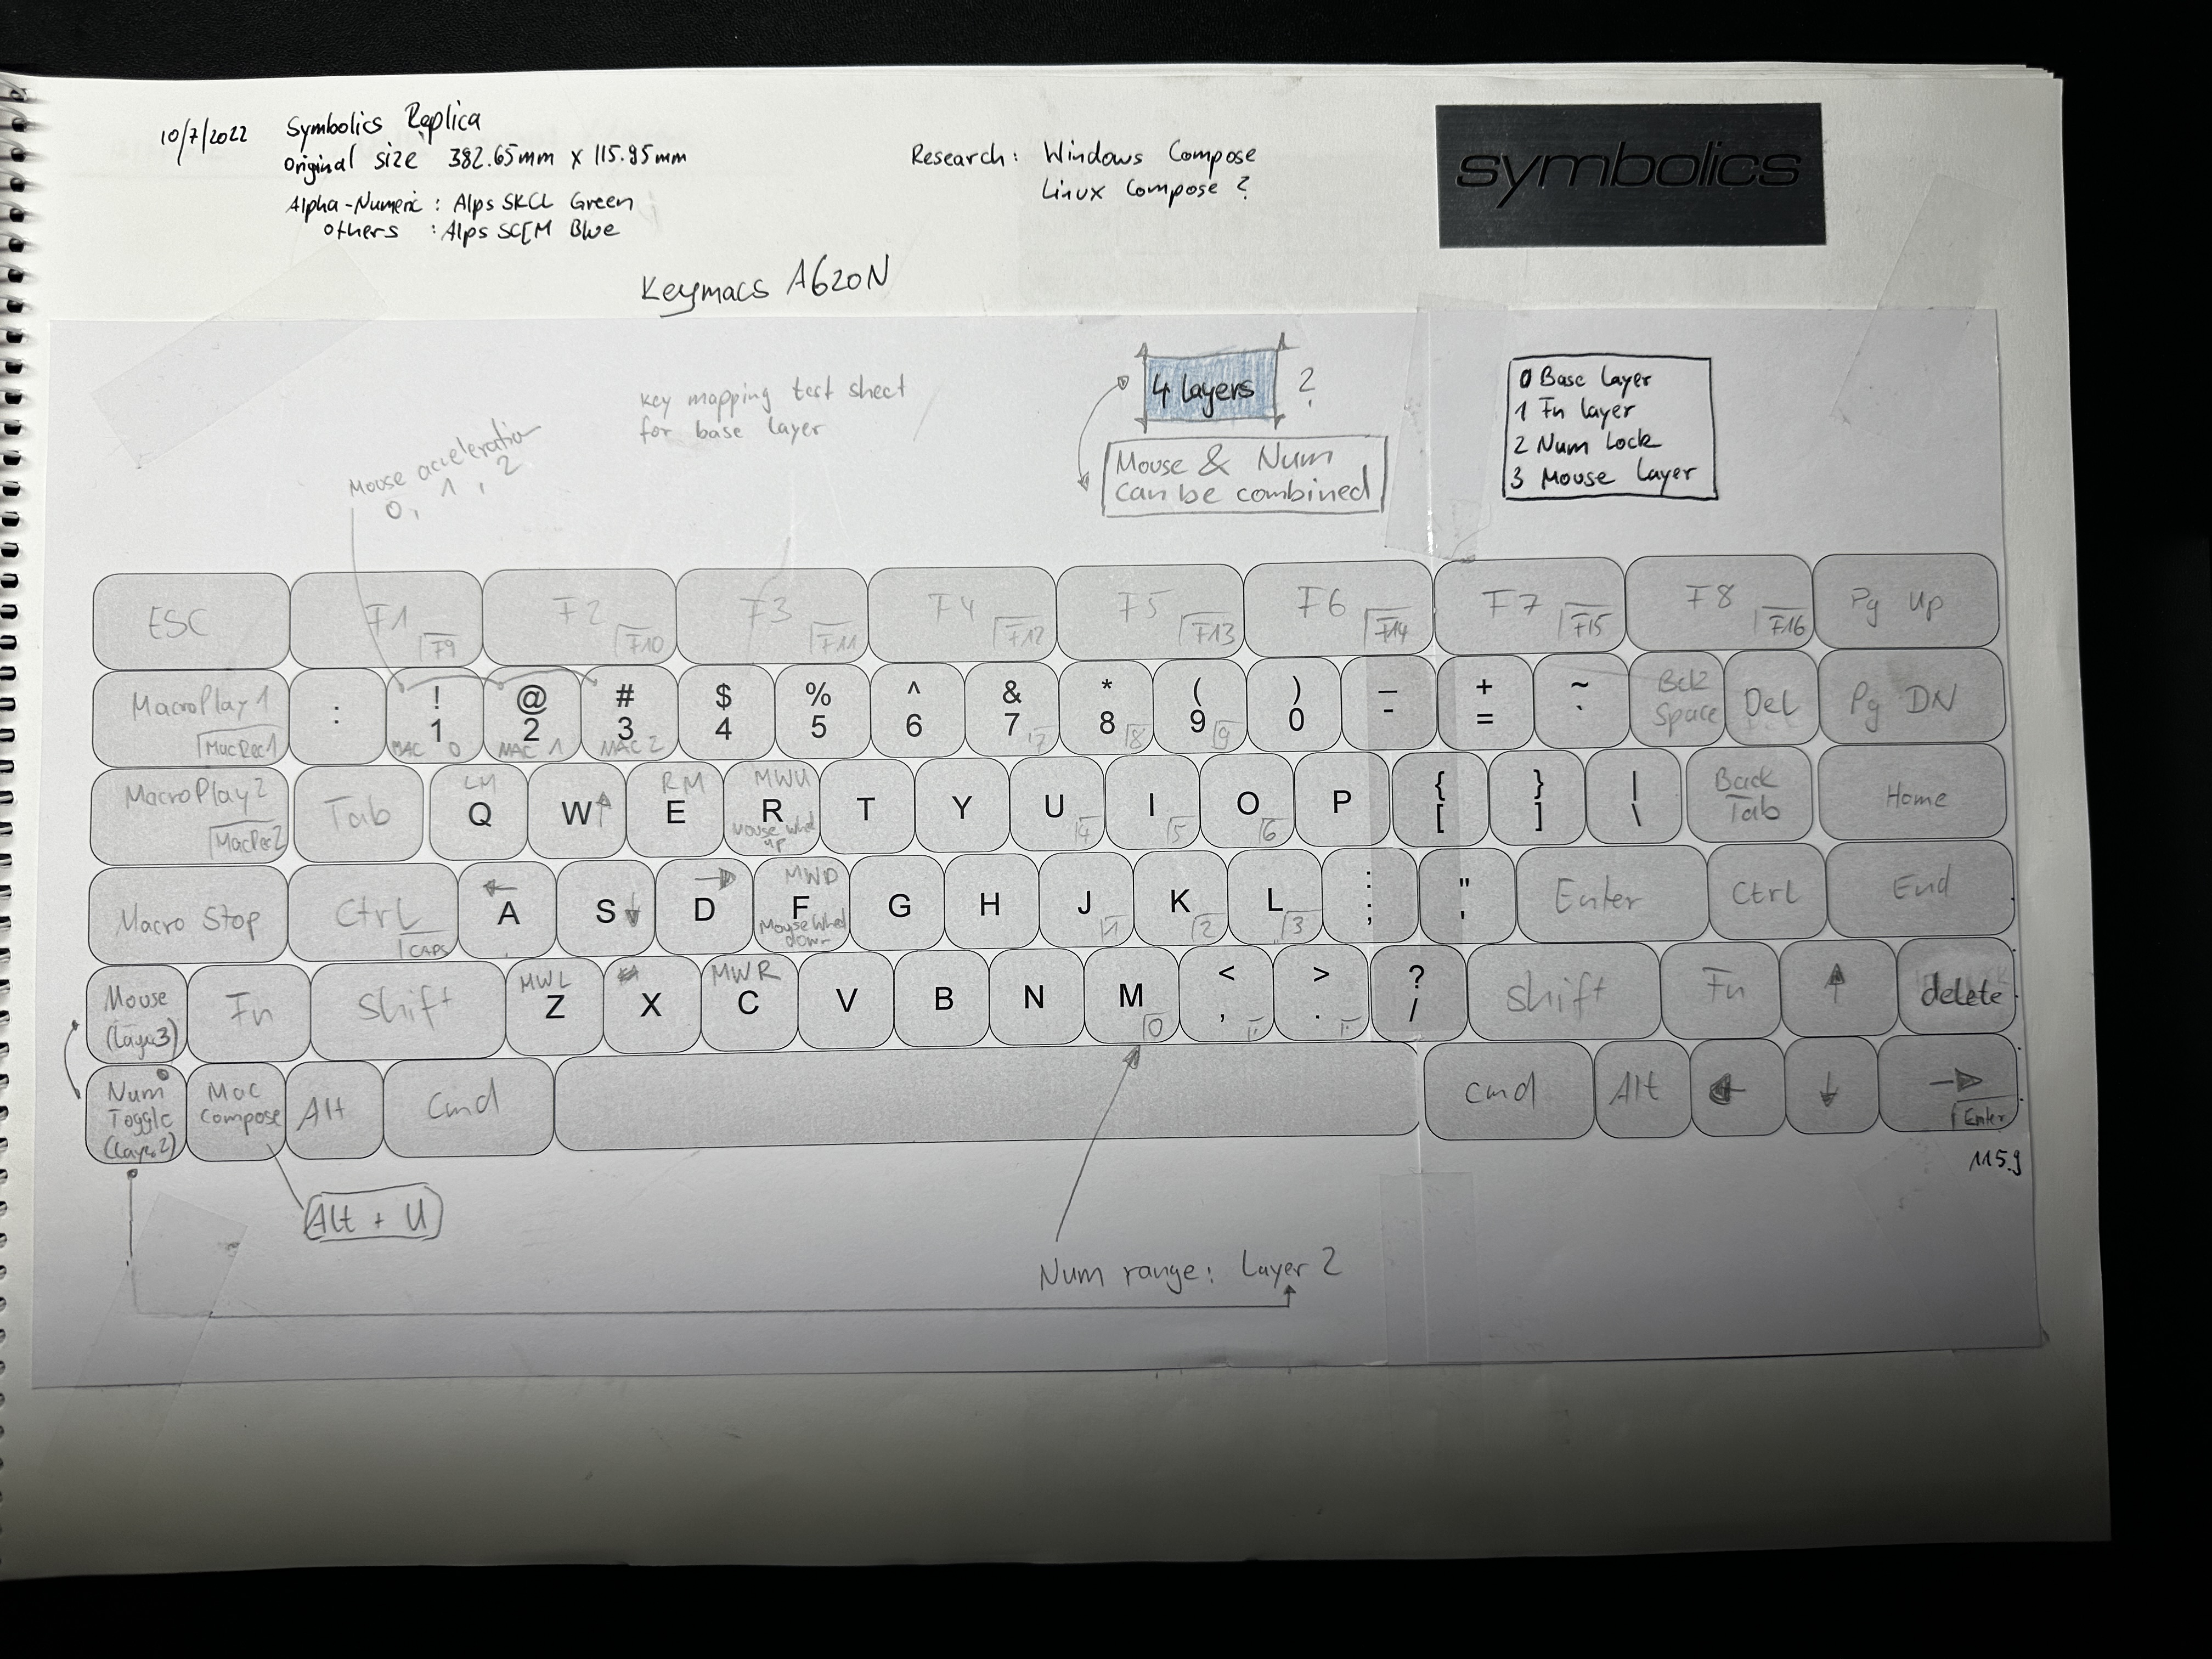 10/7/2022 Symbolics Replica
Original size 382.65mm x 115.95mm
Alpha-Numeric : Alps SKCL Green
others : Alps SCEM Blue
Research: Windows Compose
Linux Compose ?
symbolics
Keymacs A620N
key mapping test sheet
for base layer
Mouse acceleration
0, 1, 2
4 layers ?
Mouse & Num
can be combined
0 Base Layer
1 Fn layer
2 Num Lock
3 Mouse Layer
ESC F1 F9 F2 F10 F3 F11 F4 F12 F5 F13 F6 F14 F7 F15 F8 F16 Pg Up
MacroPlay1 MacRec1 : ! 1 MAC 0 @ 2 MAC 1 # 3 MAC 2 $ 4 % 5 ^ 6 & 7 7 * 8 8 ( 9 9 ) 0 _ - + = ~ ` Bck Space Del Pg DN
MacroPlay2 MacRec2 Tab LM Q W ↑ RM E MWU R Mouse Wheel up T Y U 4 I 5 O 6 P { [ } ] | \ Back Tab Home
Macro Stop Ctrl CAPS ← A S ↓ → D MWD F Mouse Wheel down G H J 1 K 2 L 3 : ; " ' Enter Ctrl End
Mouse (Layer3) Fn Shift MWL Z X MWR C V B N M 0 < , > . ? / Shift Fn ↑ delete
Num Toggle (Layer2) Mac Compose Alt Cmd cmd Alt ← ↓ → Enter
115.9
Alt + U
Num range: Layer 2